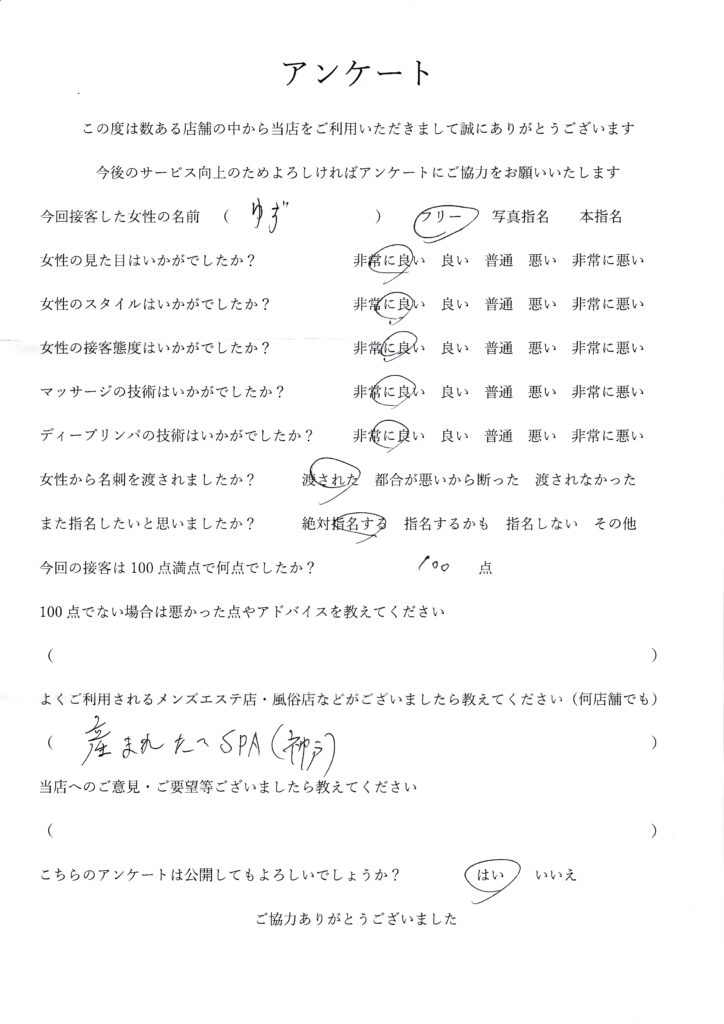 アンケート
この度は数ある店舗の中から当店をご利用いただきまして誠にありがとうございます
今後のサービス向上のためよろしければアンケートにご協力をお願いいたします
今回接客した女性の名前 ( ゆず ) フリー 写真指名 本指名
女性の見た目はいかがでしたか？ 非常に良い 良い 普通 悪い 非常に悪い
女性のスタイルはいかがでしたか？ 非常に良い 良い 普通 悪い 非常に悪い
女性の接客態度はいかがでしたか？ 非常に良い 良い 普通 悪い 非常に悪い
マッサージの技術はいかがでしたか？ 非常に良い 良い 普通 悪い 非常に悪い
ディープリンパの技術はいかがでしたか？ 非常に良い 良い 普通 悪い 非常に悪い
女性から名刺を渡されましたか？ 渡された 都合が悪いから断った 渡されなかった
また指名したいと思いましたか？ 絶対指名する 指名するかも 指名しない その他
今回の接客は 100 点満点で何点でしたか？ 100 点
100 点でない場合は悪かった点やアドバイスを教えてください
( )
よくご利用されるメンズエステ店・風俗店などがございましたら教えてください（何店舗でも）
( 産まれたて SPA (神戸) )
当店へのご意見・ご要望等ございましたら教えてください
( )
こちらのアンケートは公開してもよろしいでしょうか？ はい いいえ
ご協力ありがとうございました